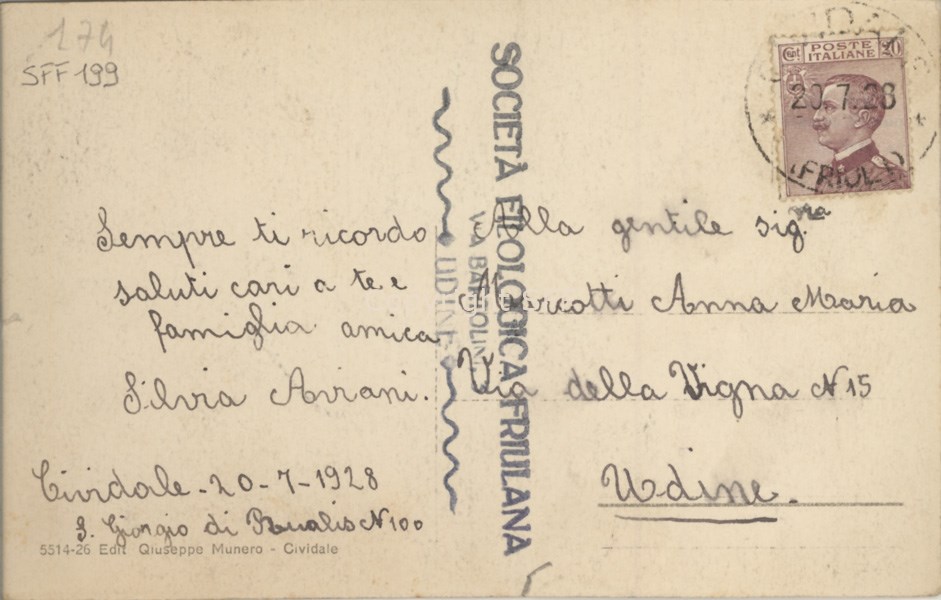 174
SFF 199
Sempre ti ricordo
saluti cari a te e
famiglia amica
Silvia Aviani.
Cividale - 20 - 7 - 1928
S. Giorgio di Rualis N 100
5514-26 Edit Giuseppe Munero - Cividale
SOCIETÀ FILOLOGICA FRIULANA
VIA BARTOLINI
UDINE
Cent POSTE ITALIANE 20
20.7.28
(FRIULI)
Alla gentile sig.ra
Marcotti Anna Maria
Via della Vigna N 15
Udine.